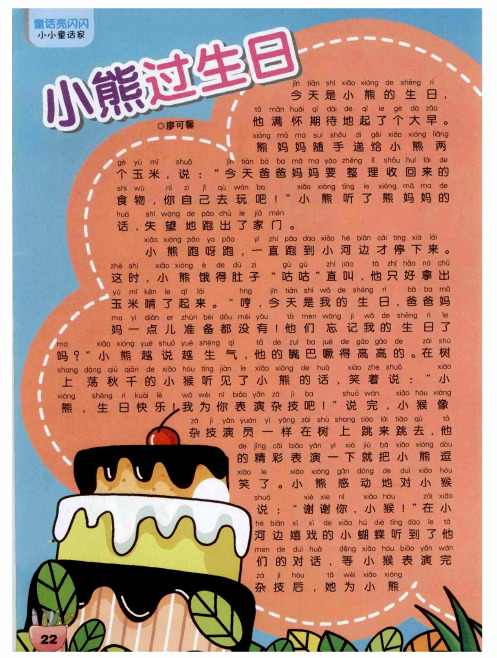 童话亮闪闪
小小童话家
小熊过生日
◎廖可馨
jīn tiān shì xiǎo xióng de shēng rì
今天是小熊的生日，
tā mǎn huái qī dài de qǐ le gè dà zǎo
他满怀期待地起了个大早。
xióng mā ma suí shǒu dì gěi xiǎo xióng liǎng
熊妈妈随手递给小熊两
gè yù mǐ shuō jīn tiān bà ba mā ma yào zhěng lǐ shōu huí lái de
个玉米，说：“今天爸爸妈妈要整理收回来的
shí wù nǐ zì jǐ qù wán ba xiǎo xióng tīng le xióng mā ma de
食物，你自己去玩吧！”小熊听了熊妈妈的
huà shī wàng de pǎo chū le jiā mén
话，失望地跑出了家门。
xiǎo xióng pǎo ya pǎo yì zhí pǎo dào xiǎo hé biān cái tíng xià lái
小熊跑呀跑，一直跑到小河边才停下来。
zhè shí xiǎo xióng è de dù zi gū gū zhí jiào tā zhǐ hǎo ná chū
这时，小熊饿得肚子“咕咕”直叫，他只好拿出
yù mǐ kěn le qǐ lái hng jīn tiān shì wǒ de shēng rì bà ba mā
玉米啃了起来。“哼，今天是我的生日，爸爸妈
ma yì diǎn er zhǔn bèi dōu méi yǒu tā men wàng jì wǒ de shēng rì le
妈一点儿准备都没有！他们忘记我的生日了
ma xiǎo xióng yuè shuō yuè shēng qì tā de zuǐ ba juē de gāo gāo de zài shù
吗？”小熊越说越生气，他的嘴巴噘得高高的。在树
shang dàng qiū qiān de xiǎo hóu tīng jiàn le xiǎo xióng de huà xiào zhe shuō xiǎo
上荡秋千的小猴听见了小熊的话，笑着说：“小
xióng shēng rì kuài lè wǒ wèi nǐ biǎo yǎn zá jì ba shuō wán xiǎo hóu xiàng
熊，生日快乐！我为你表演杂技吧！”说完，小猴像
zá jì yǎn yuán yí yàng zài shù shàng tiào lái tiào qù tā
杂技演员一样在树上跳来跳去，他
de jīng cǎi biǎo yǎn yí xià jiù bǎ xiǎo xióng dòu
的精彩表演一下就把小熊逗
xiào le xiǎo xióng gǎn dòng de duì xiǎo hóu
笑了。小熊感动地对小猴
shuō xiè xie nǐ xiǎo hóu zài xiǎo
说：“谢谢你，小猴！”在小
hé biān xī xì de xiǎo hú dié tīng dào le tā
河边嬉戏的小蝴蝶听到了他
men de duì huà děng xiǎo hóu biǎo yǎn wán
们的对话，等小猴表演完
zá jì hòu tā wèi xiǎo xióng
杂技后，她为小熊
22